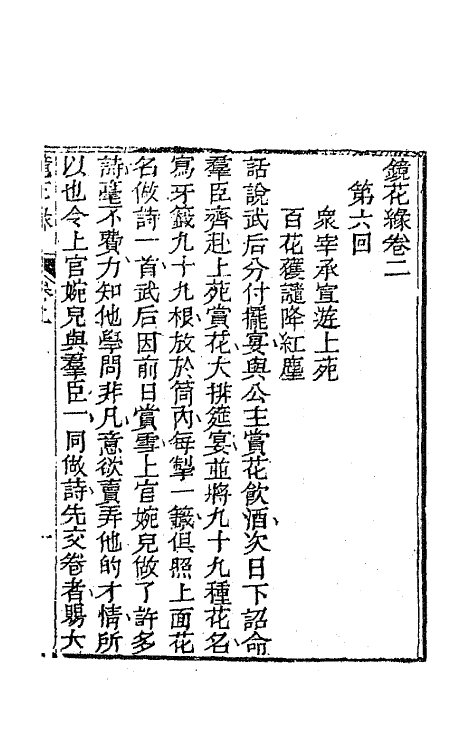 鏡花緣卷二
第六回
衆宰承宣遊上苑
百花獲譴降紅塵
話說武后分付擺宴與公主賞花飲酒次日下詔命
羣臣齊赴上苑賞花大排筵宴並將九十九種花名
寫牙籤九十九根放於筒內每掣一籤俱照上面花
名做詩一首武后因前日賞雪上官婉兒做了許多
詩毫不費力知他學問非凡意欲賣弄他的才情所
以也令上官婉兒與羣臣一同做詩先交卷者賜大